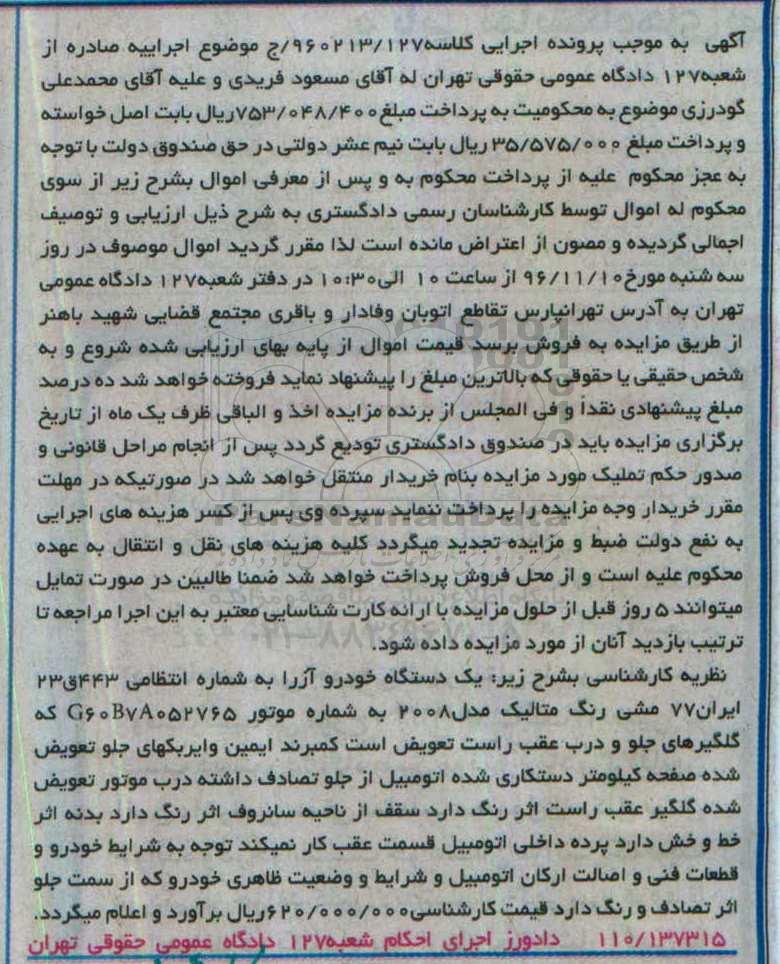 آگهی به موجب پرونده اجرایی کلاسه۹۶۰۲۱۳/۱۲۷/ج موضوع اجراییه صادره از
شعبه۱۲۷ دادگاه عمومی حقوقی تهران له آقای مسعود فریدی و علیه آقای محمدعلی
گودرزی موضوع به محکومیت به پرداخت مبلغ۷۵۳/۰۴۸/۴۰۰ریال بابت اصل خواسته
و پرداخت مبلغ ۳۵/۵۷۵/۰۰۰ ریال بابت نیم عشر دولتی در حق صندوق دولت با توجه
به عجز محکوم علیه از پرداخت محکوم به و پس از معرفی اموال بشرح زیر از سوی
محکوم له اموال توسط کارشناسان رسمی دادگستری به شرح ذیل ارزیابی و توصیف
اجمالی گردیده و مصون از اعتراض مانده است لذا مقرر گردید اموال موصوف در روز
سه شنبه مورخ۹۶/۱۱/۱۰ از ساعت ۱۰ الی۱۰:۳۰ در دفتر شعبه۱۲۷ دادگاه عمومی
تهران به آدرس تهرانپارس تقاطع اتوبان وفادار و باقری مجتمع قضایی شهید باهنر
از طریق مزایده به فروش برسد قیمت اموال از پایه بهای ارزیابی شده شروع و به
شخص حقیقی یا حقوقی که بالاترین مبلغ را پیشنهاد نماید فروخته خواهد شد ده درصد
مبلغ پیشنهادی نقداً و فی المجلس از برنده مزایده اخذ و الباقی ظرف یک ماه از تاریخ
برگزاری مزایده باید در صندوق دادگستری تودیع گردد پس از انجام مراحل قانونی و
صدور حکم تملیک مورد مزایده بنام خریدار منتقل خواهد شد در صورتیکه در مهلت
مقرر خریدار وجه مزایده را پرداخت ننماید سپرده وی پس از کسر هزینه های اجرایی
به نفع دولت ضبط و مزایده تجدید میگردد کلیه هزینه های نقل و انتقال به عهده
محکوم علیه است و از محل فروش پرداخت خواهد شد ضمنا طالبین در صورت تمایل
میتوانند ۵ روز قبل از حلول مزایده با ارائه کارت شناسایی معتبر به این اجرا مراجعه تا
ترتیب بازدید آنان از مورد مزایده داده شود.
نظریه کارشناسی بشرح زیر: یک دستگاه خودرو آزرا به شماره انتظامی ۴۴۳ق۲۳
ایران۷۷ مشی رنگ متالیک مدل۲۰۰۸ به شماره موتور G۶۰B۷A۰۵۲۷۶۵ که
گلگیرهای جلو و درب عقب راست تعویض است کمبرند ایمین وایربکهای جلو تعویض
شده صفحه کیلومتر دستکاری شده اتومبیل از جلو تصادف داشته درب موتور تعویض
شده گلگیر عقب راست اثر رنگ دارد سقف از ناحیه سانروف اثر رنگ دارد بدنه اثر
خط و خش دارد پرده داخلی اتومبیل قسمت عقب کار نمیکند توجه به شرایط خودرو و
قطعات فنی و اصالت ارکان اتومبیل و شرایط و وضعیت ظاهری خودرو که از سمت جلو
اثر تصادف و رنگ دارد قیمت کارشناسی۶۲۰/۰۰۰/۰۰۰ریال برآورد و اعلام میگردد.
۱۱۰/۱۳۷۳۱۵ دادورز اجرای احکام شعبه۱۲۷ دادگاه عمومی حقوقی تهران
ParsNamadData